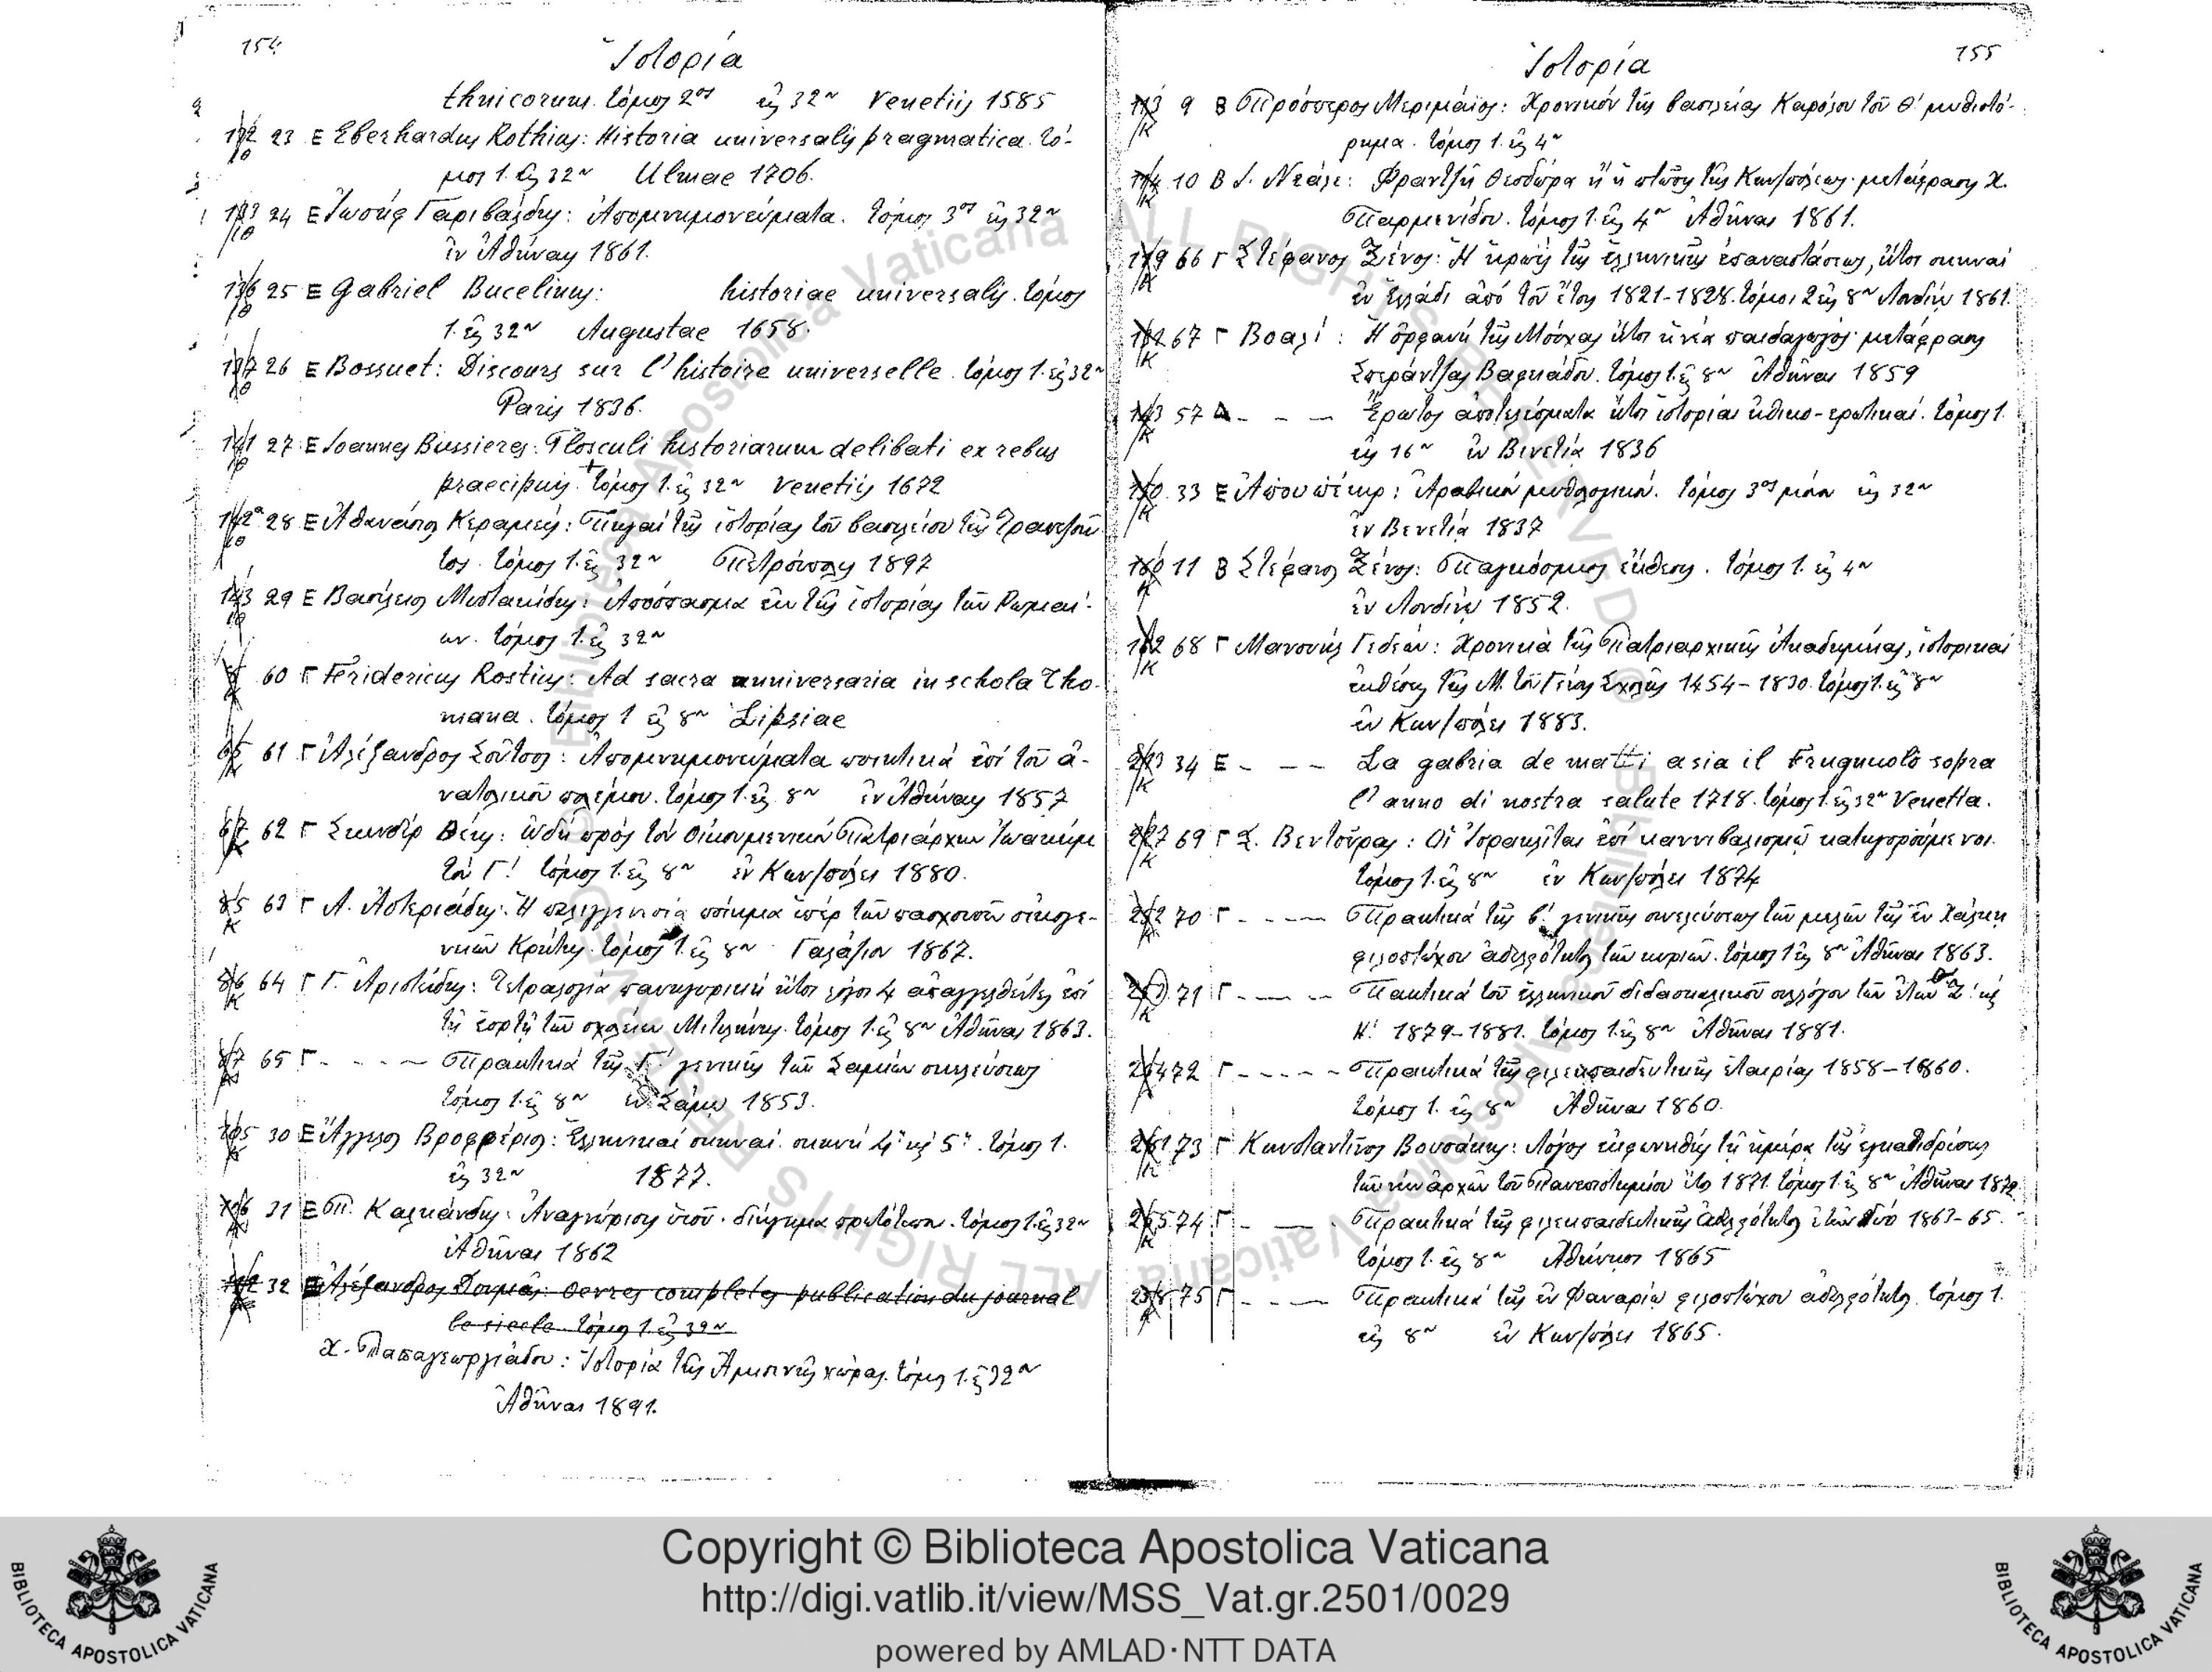 154
Ἱστορία
thnicorum. τόμος 2ος εἰς 32ον Venetiis 1585
23 Ε Eberhardus Rothius: Historia universalis pragmatica. τό-
μος 1. εἰς 32ον Ulmae 1706.
24 Ε Ἰωσήφ Γαριβάλδης: Ἀπομνημονεύματα. τόμος 3ος εἰς 32ον
ἐν Ἀθήναις 1861.
25 Ε Gabriel Bucelinus: historiae universalis. τόμος
1. εἰς 32ον Augustae 1658.
26 Ε Bossuet: Discours sur l'histoire universelle. τόμος 1. εἰς 32ον
Paris 1836.
27 Ε Joannes Bussieres: Flosculi historiarum delibati ex rebus
praecipuis. τόμος 1. εἰς 32ον Venetiis 1672
28 Ε Ἀθανάσιος Κεραμεύς: Πηγαί τῆς ἱστορίας τοῦ βασιλείου τῆς Τραπεζοῦν
τος. τόμος 1. εἰς 32ον Πετρούπολις 1897
29 Ε Βασίλειος Μυστακίδης: Ἀπόσπασμα ἐκ τῆς ἱστορίας τῶν Ρωμαί-
ων. τόμος 1. εἰς 32ον
60 Γ Fridericus Rostius: Ad sacra anniversaria in schola Tho-
mana. τόμος 1 εἰς 8ον Lipsiae
61 Γ Ἀλέξανδρος Σοῦτσος: Ἀπομνημονεύματα ποιητικά ἐπί τοῦ ἀ-
νατολικοῦ πολέμου. τόμος 1. εἰς 8ον ἐν Ἀθήναις 1857
62 Γ Σκενδέρ Βέης: ᾠδή πρός τόν Οἰκουμενικόν Πατριάρχην Ἰωακείμ
τόν Γ! τόμος 1. εἰς 8ον ἐν Κων/πόλει 1880.
63 Γ Α. Ἀστεριάδης: Ἡ παλιγγενεσία ποίημα ὑπέρ τῶν πασχουσῶν οἰκογε-
νειῶν Κρήτης. τόμος 1. εἰς 8ον Γαλάζιον 1867.
64 Γ Γ. Ἀριστείδης: Τετραλογία πανηγυρική ἤτοι λόγοι 4 ἀπαγγελθέντες ἐπί
τῇ ἑορτῇ τῶν σχολείων Μιτυλήνης. τόμος 1. εἰς 8ον Ἀθῆναι 1863.
65 Γ - - - - Πρακτικά τῆς Γ΄ γενικῆς τῶν Σαμίων συνελεύσεως
τόμος 1. εἰς 8ον ἐν Σάμῳ 1853.
30 Ε Ἄγγελος Βροφφέριος: Ἑλληνικαί σκηναί. σκηνή 4η κ 5η. τόμος 1.
εἰς 32ον 1877.
31 Ε Π. Καλκάνδης: Ἀναγνώρισις υἱοῦ. διήγημα πρωτότυπον. τόμος 1. εἰς 32ον
Ἀθῆναι 1862
32 Ε Ἀλέξανδρος Δουμᾶς: oevres completes publication du journal
le siecle. τόμος 1. εἰς 32ον
Χ. Παπαγεωργιάδου: Ἱστορία τῆς χώρας. τόμος 1. εἰς 32ον
Ἀθῆναι 1891.
Ἱστορία
155
9 Β Πρόσπερος Μεριμαῖος: Χρονικόν τῆς βασιλείας Καρόλου τοῦ Θ΄ μυθιστό-
ρημα. τόμος 1. εἰς 4ον
10 Β Ι. Νεάλε: Φραντζῆ Θεοδώρα ἤ ἡ πτῶσις τῆς Κων/πόλεως. μετάφρασις Χ.
Παρμενίδου. τόμος 1. εἰς 4ον Ἀθῆναι 1861.
66 Γ Στέφανος Ξένος: Ἡ ἡρωΐς τῆς ἑλληνικῆς ἐπαναστάσεως, ἤτοι σκηναί
ἐν Ἑλλάδι ἀπό τοῦ ἔτους 1821-1828. τόμοι 2 εἰς 8ον Λονδῖνον 1861.
67 Γ Βοαλί: Ἡ ὀρφανή τῆς Μόσχας ἤτοι ἡ νέα παιδαγωγός. μετάφρασις
Σπεράντζας Βαφιάδου. τόμος 1. εἰς 8ον Ἀθῆναι 1859
57 Δ - - - Ἔρωτος ἀποτελέσματα ἤτοι ἱστορίαι ἠθικο-ερωτικαί. τόμος 1.
εἰς 16ον ἐν Βενετίᾳ 1836
33 Ε Ἀπουπέκηρ: Ἀραβικόν μυθολογικόν. τόμος 3ος μόνον εἰς 32ον
ἐν Βενετίᾳ 1837
11 Β Στέφανος Ξένος: Παγκόσμιος ἔκθεσις. τόμος 1. εἰς 4ον
ἐν Λονδίνῳ 1852.
68 Γ Μανουήλ Γεδεών: Χρονικά τῆς Πατριαρχικῆς Ἀκαδημίας, ἱστορικαί
ἐκθέσεις τῆς Μ. τοῦ Γένους Σχολῆς 1454-1830. τόμος 1. εἰς 8ον
ἐν Κων/πόλει 1883.
34 Ε - - - La gabria de matti asia il Frugnuolo sopra
l'anno di nostra salute 1718. τόμος 1. εἰς 32ον Venetia.
69 Γ Σ. Βεντούρας: Οἱ Ἰσραηλῖται ἐπί καννιβαλισμῷ κατηγορούμενοι.
τόμος 1. εἰς 8ον ἐν Κων/πόλει 1874
70 Γ - - - - Πρακτικά τῆς β΄ γενικῆς συνελεύσεως τῶν μελῶν τῆς ἐν Χάλκῃ
φιλοπτώχου ἀδελφότητος τῶν κυριῶν. τόμος 1 εἰς 8ον Ἀθῆναι 1863.
71 Γ - - - - Πακτικά τοῦ ἑλληνικοῦ διδασκαλικοῦ συλλόγου τῶν ἐτῶν Ζ΄ κ
Η΄ 1879-1881. τόμος 1. εἰς 8ον Ἀθῆναι 1881.
72 Γ - - - - - Πρακτικά τῆς φιλεκπαιδευτικῆς ἑταιρίας 1858-1860.
τόμος 1. εἰς 8ον Ἀθῆναι 1860.
73 Γ Κωνσταντῖνος Βουσάκης: Λόγος ἐκφωνηθείς τῇ ἡμέρᾳ τῆς ἐγκαθιδρύσεως
τῶν νέων ἀρχῶν τοῦ Πανεπιστημίου ἔτος 1871. τόμος 1. εἰς 8ον Ἀθῆναι 1872.
74 Γ - - - Πρακτικά τῆς φιλεκπαιδευτικῆς ἀδελφότητος ἐτῶν δύο 1863-65.
τόμος 1. εἰς 8ον Ἀθήνησι 1865
75 Γ - - - Πρακτικά τῆς ἐν Φαναρίῳ φιλοπτώχου ἀδελφότητος. τόμος 1.
εἰς 8ον ἐν Κων/πόλει 1865.
Copyright © Biblioteca Apostolica Vaticana
http://digi.vatlib.it/view/MSS_Vat.gr.2501/0029
powered by AMLAD·NTT DATA
BIBLIOTECA APOSTOLICA VATICANA
BIBLIOTECA APOSTOLICA VATICANA